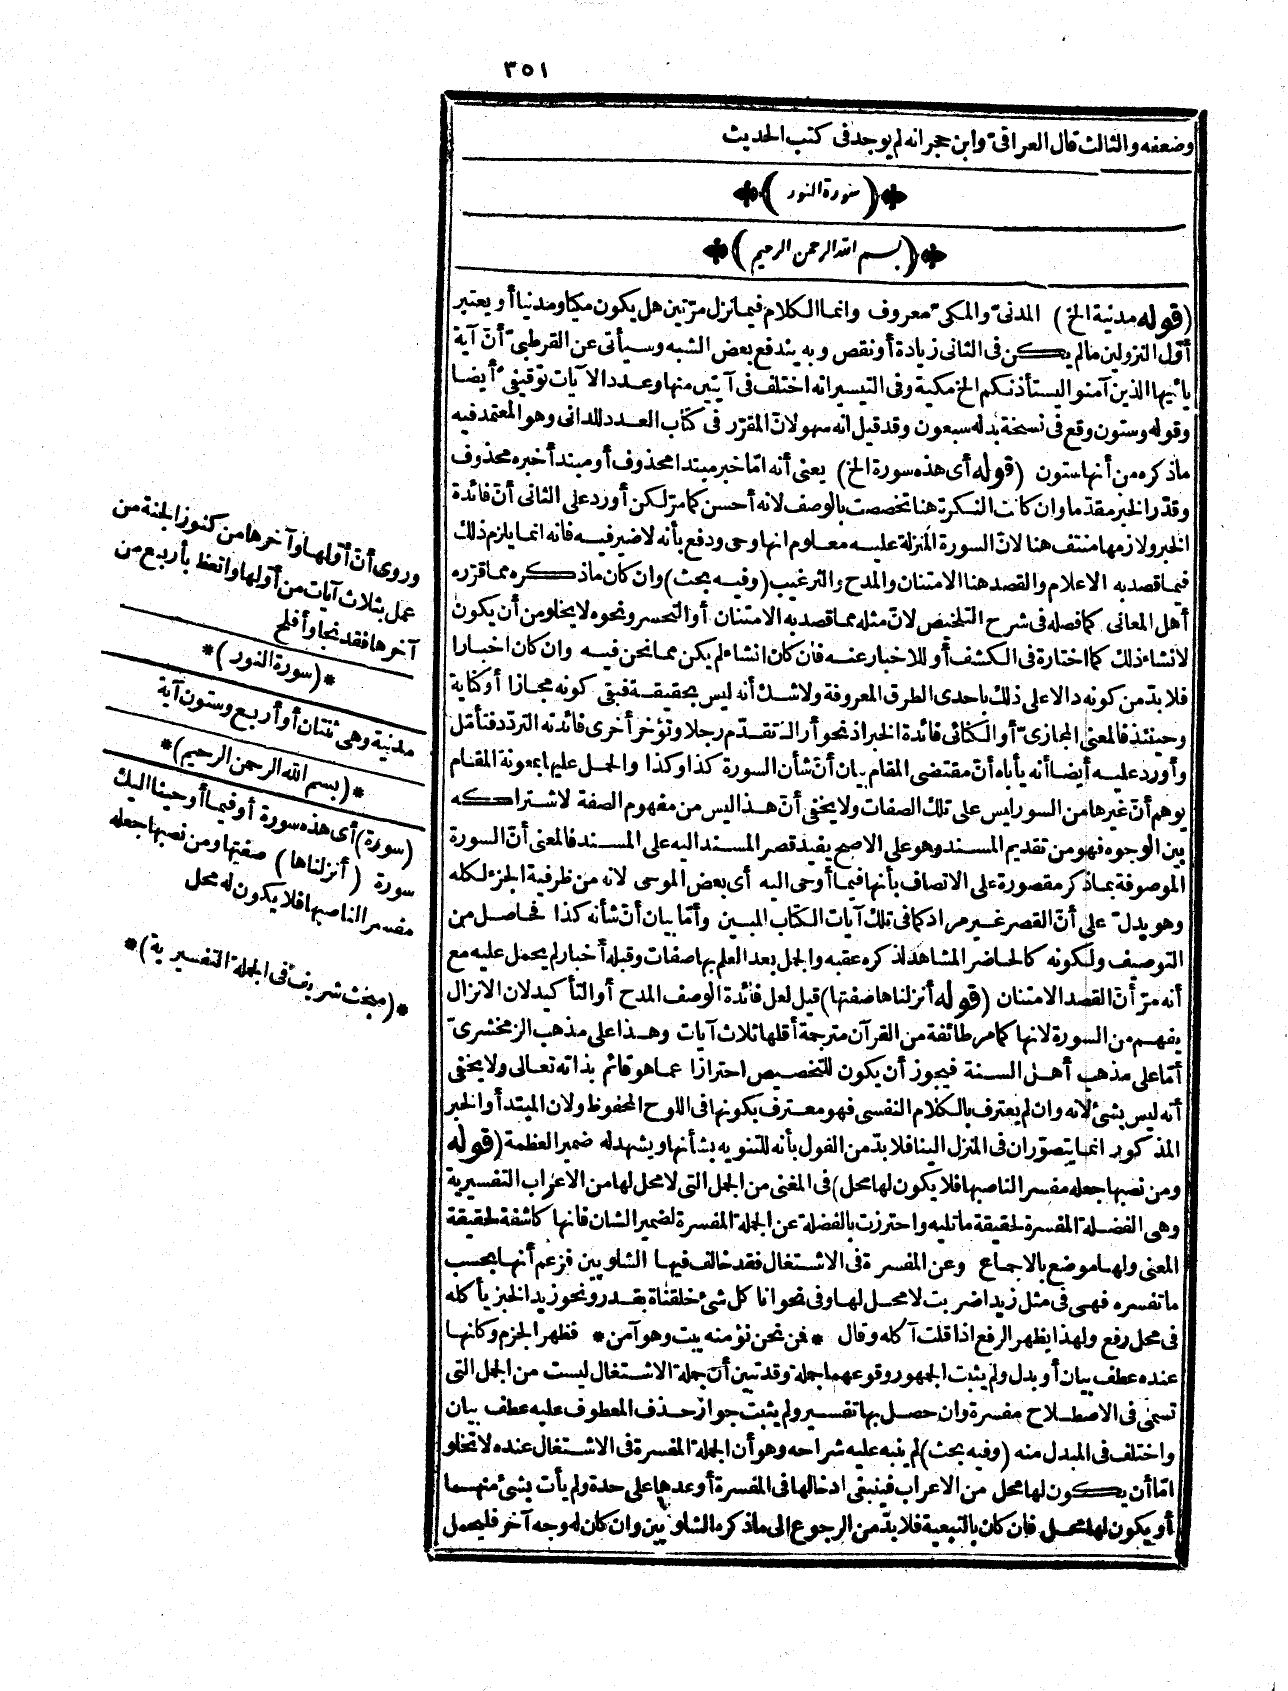 ٣٥١
وضعفه والثالث قال العراقىّ وابن حجر انه لم يوجد فى كتب الحديث
(سورة النور)
(بسم الله الرحمن الرحيم)
(قوله مدنية الخ) المدنىّ والمكىّ معروف وانما الكلام فيما نزل مرّتين هل يكون مكيا ومدنيا أو يعتبر
أوّل النزولين مالم يكن فى الثانى زيادة أو نقص وبه يندفع بعض الشبه وسيأتى عن القرطبىّ أنّ آية
يا أيها الذين آمنوا ليستأذنكم الخ مكية وفى التيسير انه اختلف فى آيتين منها وعدد الآيات توقيفىّ أيضا
وقوله وستون وقع فى نسخة بدله سبعون وقد قيل انه سهو لانّ المقرّر فى كتاب العدد للدانى وهو المعتمد فيه
ماذكره من أنها ستون (قوله أى هذه سورة الخ) يعنى أنه امّا خبر مبتدا محذوف أو مبتدأ خبره محذوف
وقدّر الخبر مقدّما وان كانت النكرة هنا تخصصت بالوصف لانه أحسن كما مرّ لكن أورد على الثانى أنّ فائدة
الخبر ولازمها منتف هنا لانّ السورة المنزلة عليه معلوم انها وحى ودفع بأنه لا ضير فيه فانه انما يلزم ذلك
فيما قصد به الاعلام والقصد هنا الامتنان والمدح والترغيب (وفيه بحث) وان كان ماذكره مما قرّره
أهل المعانى كما فصله فى شرح التلخيص لانّ مثله مما قصد به الامتنان أو التحسر ونحوه لا يخلو من أن يكون
لانشاء ذلك كما اختاره فى الكشف أو للاخبار عنه فان كان انشاء لم يكن مما نحن فيه وان كان اخبارا
فلا بدّ من كونه دالا على ذلك باحدى الطرق المعروفة ولا شك أنه ليس بحقيقة فبقى كونه مجازا أو كناية
وحينئذ فالمعنى المجازىّ أو الكنائى فائدة الخبر اذ نحو أراك تقدّم رجلا وتؤخر أخرى فائدته التردّد فتأمّل
وأورد عليه أيضا أنه يأباه أنّ مقتضى المقام بيان أنّ شأن السورة كذا وكذا والحمل عليها بمعونة المقام
يوهم أنّ غيرها من السور ليس على تلك الصفات ولا يخفى أنّ هذا ليس من مفهوم الصفة لاشتراكه
بين الوجوه فهو من تقديم المسند وهو على الاصح يفيد قصر المسند اليه على المسند فالمعنى أنّ السورة
الموصوفة بماذكر مقصورة على الاتصاف بأنها فيما أوحى اليه أى بعض الموحى لانه من ظرفية الجزء لكله
وهو يدلّ على أنّ القصر غير مراد كما فى تلك آيات الكتاب المبين وأمّا بيان أنّ شأنه كذا فحاصل من
التوصيف ولكونه كالحاضر المشاهد لذكره عقبه والجمل بعد العلم بها صفات وقبله أخبار لم يحمل عليه مع
أنه مرّ أنّ القصد الامتنان (قوله أنزلناها صفتها) قيل لعل فائدة الوصف المدح أو التأكيد لان الانزال
يفهم من السورة لانها كما مر طائفة من القرآن مترجمة أقلها ثلاث آيات وهذا على مذهب الزمخشرىّ
أمّا على مذهب أهل السنة فيجوز أن يكون للتخصيص احترازا عما هو قائم بذاته تعالى ولا يخفى
أنه ليس بشئ لانه وان لم يعترف بالكلام النفسى فهو معترف بكونها فى اللوح المحفوظ ولان المبتدأ والخبر
المذكور انما يتصوّران فى المنزل الينا فلا بدّ من القول بأنه للتنويه بشأنها ويشهد له ضمير العظمة (قوله
ومن نصبها جعله مفسر الناصبها فلا يكون لها محل) فى المغنى من الجمل التى لا محل لها من الاعراب التفسيرية
وهى الفضلة المفسرة لحقيقة ماتليه واحترزت بالفضلة عن الجملة المفسرة لضمير الشان فانها كاشفة لحقيقة
المعنى ولها موضع بالاجماع وعن المفسرة فى الاشتغال فقد خالف فيها الشلوبين فزعم أنها بحسب
ماتفسره فهى فى مثل زيدا ضربت لا محل لها وفى نحو انا كل شئ خلقناه بقدر ونحو زيد الخبز يأكله
فى محل رفع ولهذا يظهر الرفع اذا قلت آكله وقال * فمن نحن نؤمنه يبت وهو آمن * فظهر الجزم وكانها
عنده عطف بيان أو بدل ولم يثبت الجمهور وقوعهما جملة وقد تبين أن جملة الاشتغال ليست من الجمل التى
تسمى فى الاصطلاح مفسرة وان حصل بها تفسير ولم يثبت جواز حذف المعطوف عليه عطف بيان
واختلف فى المبدل منه (وفيه بحث) لم ينبه عليه شراحه وهو أن الجملة المفسرة فى الاشتغال عنده لا تخلو
امّا أن يكون لها محل من الاعراب فينبغى ادخالها فى المفسرة أو عدها على حدة ولم يأت بشئ منهما
أو يكون لها محل فان كان بالتبعية فلا بدّ من الرجوع الى ماذكره الشلوبين وان كان له وجه آخر فليحمل
وروى أنّ أوّلها وآخرها من كنوز الجنة من
عمل بثلاث آيات من أوّلها واتعظ بأربع من
آخرها فقد نجا وأفلح
* (سورة النور) *
مدنية وهى ثنتان أو أربع وستون آية
* (بسم الله الرحمن الرحيم) *
(سورة) أى هذه سورة أو فيما أوحينا اليك
سورة (أنزلناها) صفتها ومن نصبها جعله
مفسر الناصبها فلا يكون له محل
* (مبحث شريف فى الجملة التفسيرية) *